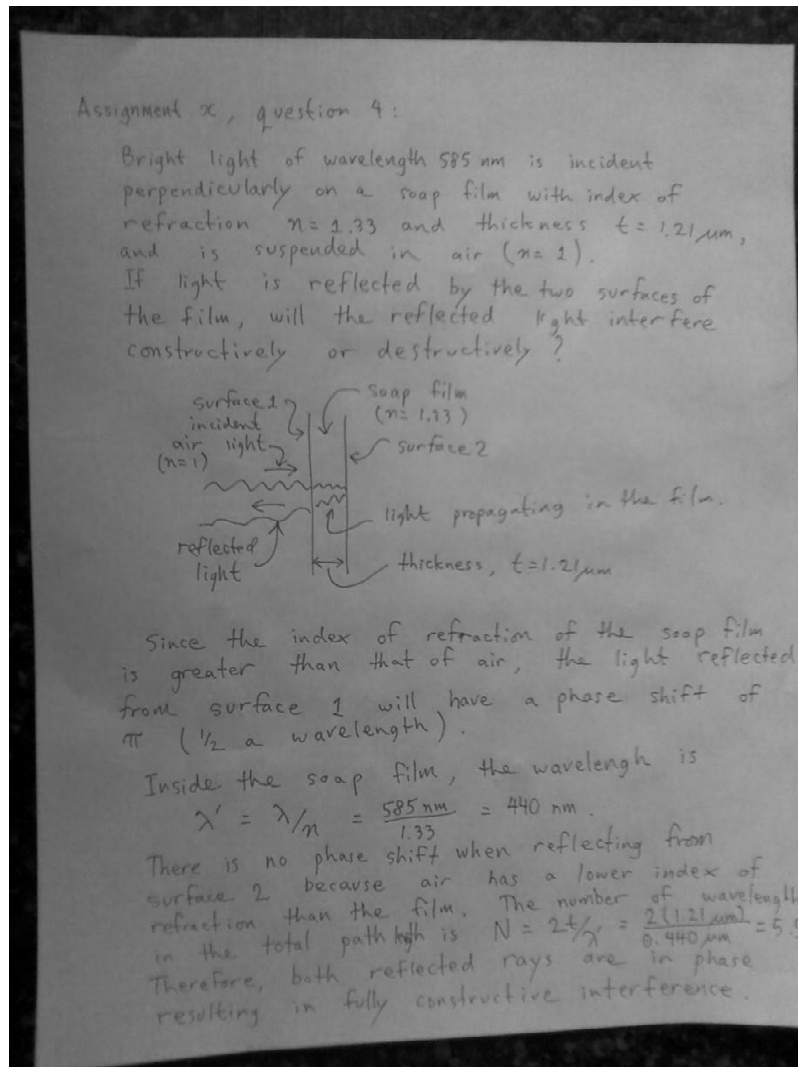 Assignment x, question 4:
Bright light of wavelength 585 nm is incident
perpendicularly on a soap film with index of
refraction n= 1.33 and thickness t= 1.21 μm,
and is suspended in air (n= 1).
If light is reflected by the two surfaces of
the film, will the reflected light interfere
constructively or destructively?
surface 1
soap film
(n= 1.33)
incident
light
air
(n=1)
surface 2
light propagating in the film.
reflected
light
thickness, t=1.21 μm
Since the index of refraction of the soap film
is greater than that of air, the light reflected
from surface 1 will have a phase shift of
π (1/2 a wavelength).
Inside the soap film, the wavelengh is
λ' = λ/n = 585 nm / 1.33 = 440 nm.
There is no phase shift when reflecting from
surface 2 because air has a lower index of
refraction than the film. The number of wavelength
in the total path is N = 2t/λ' = 2(1.21 μm) / 0.440 μm = 5.
Therefore, both reflected rays are in phase
resulting in fully constructive interference.